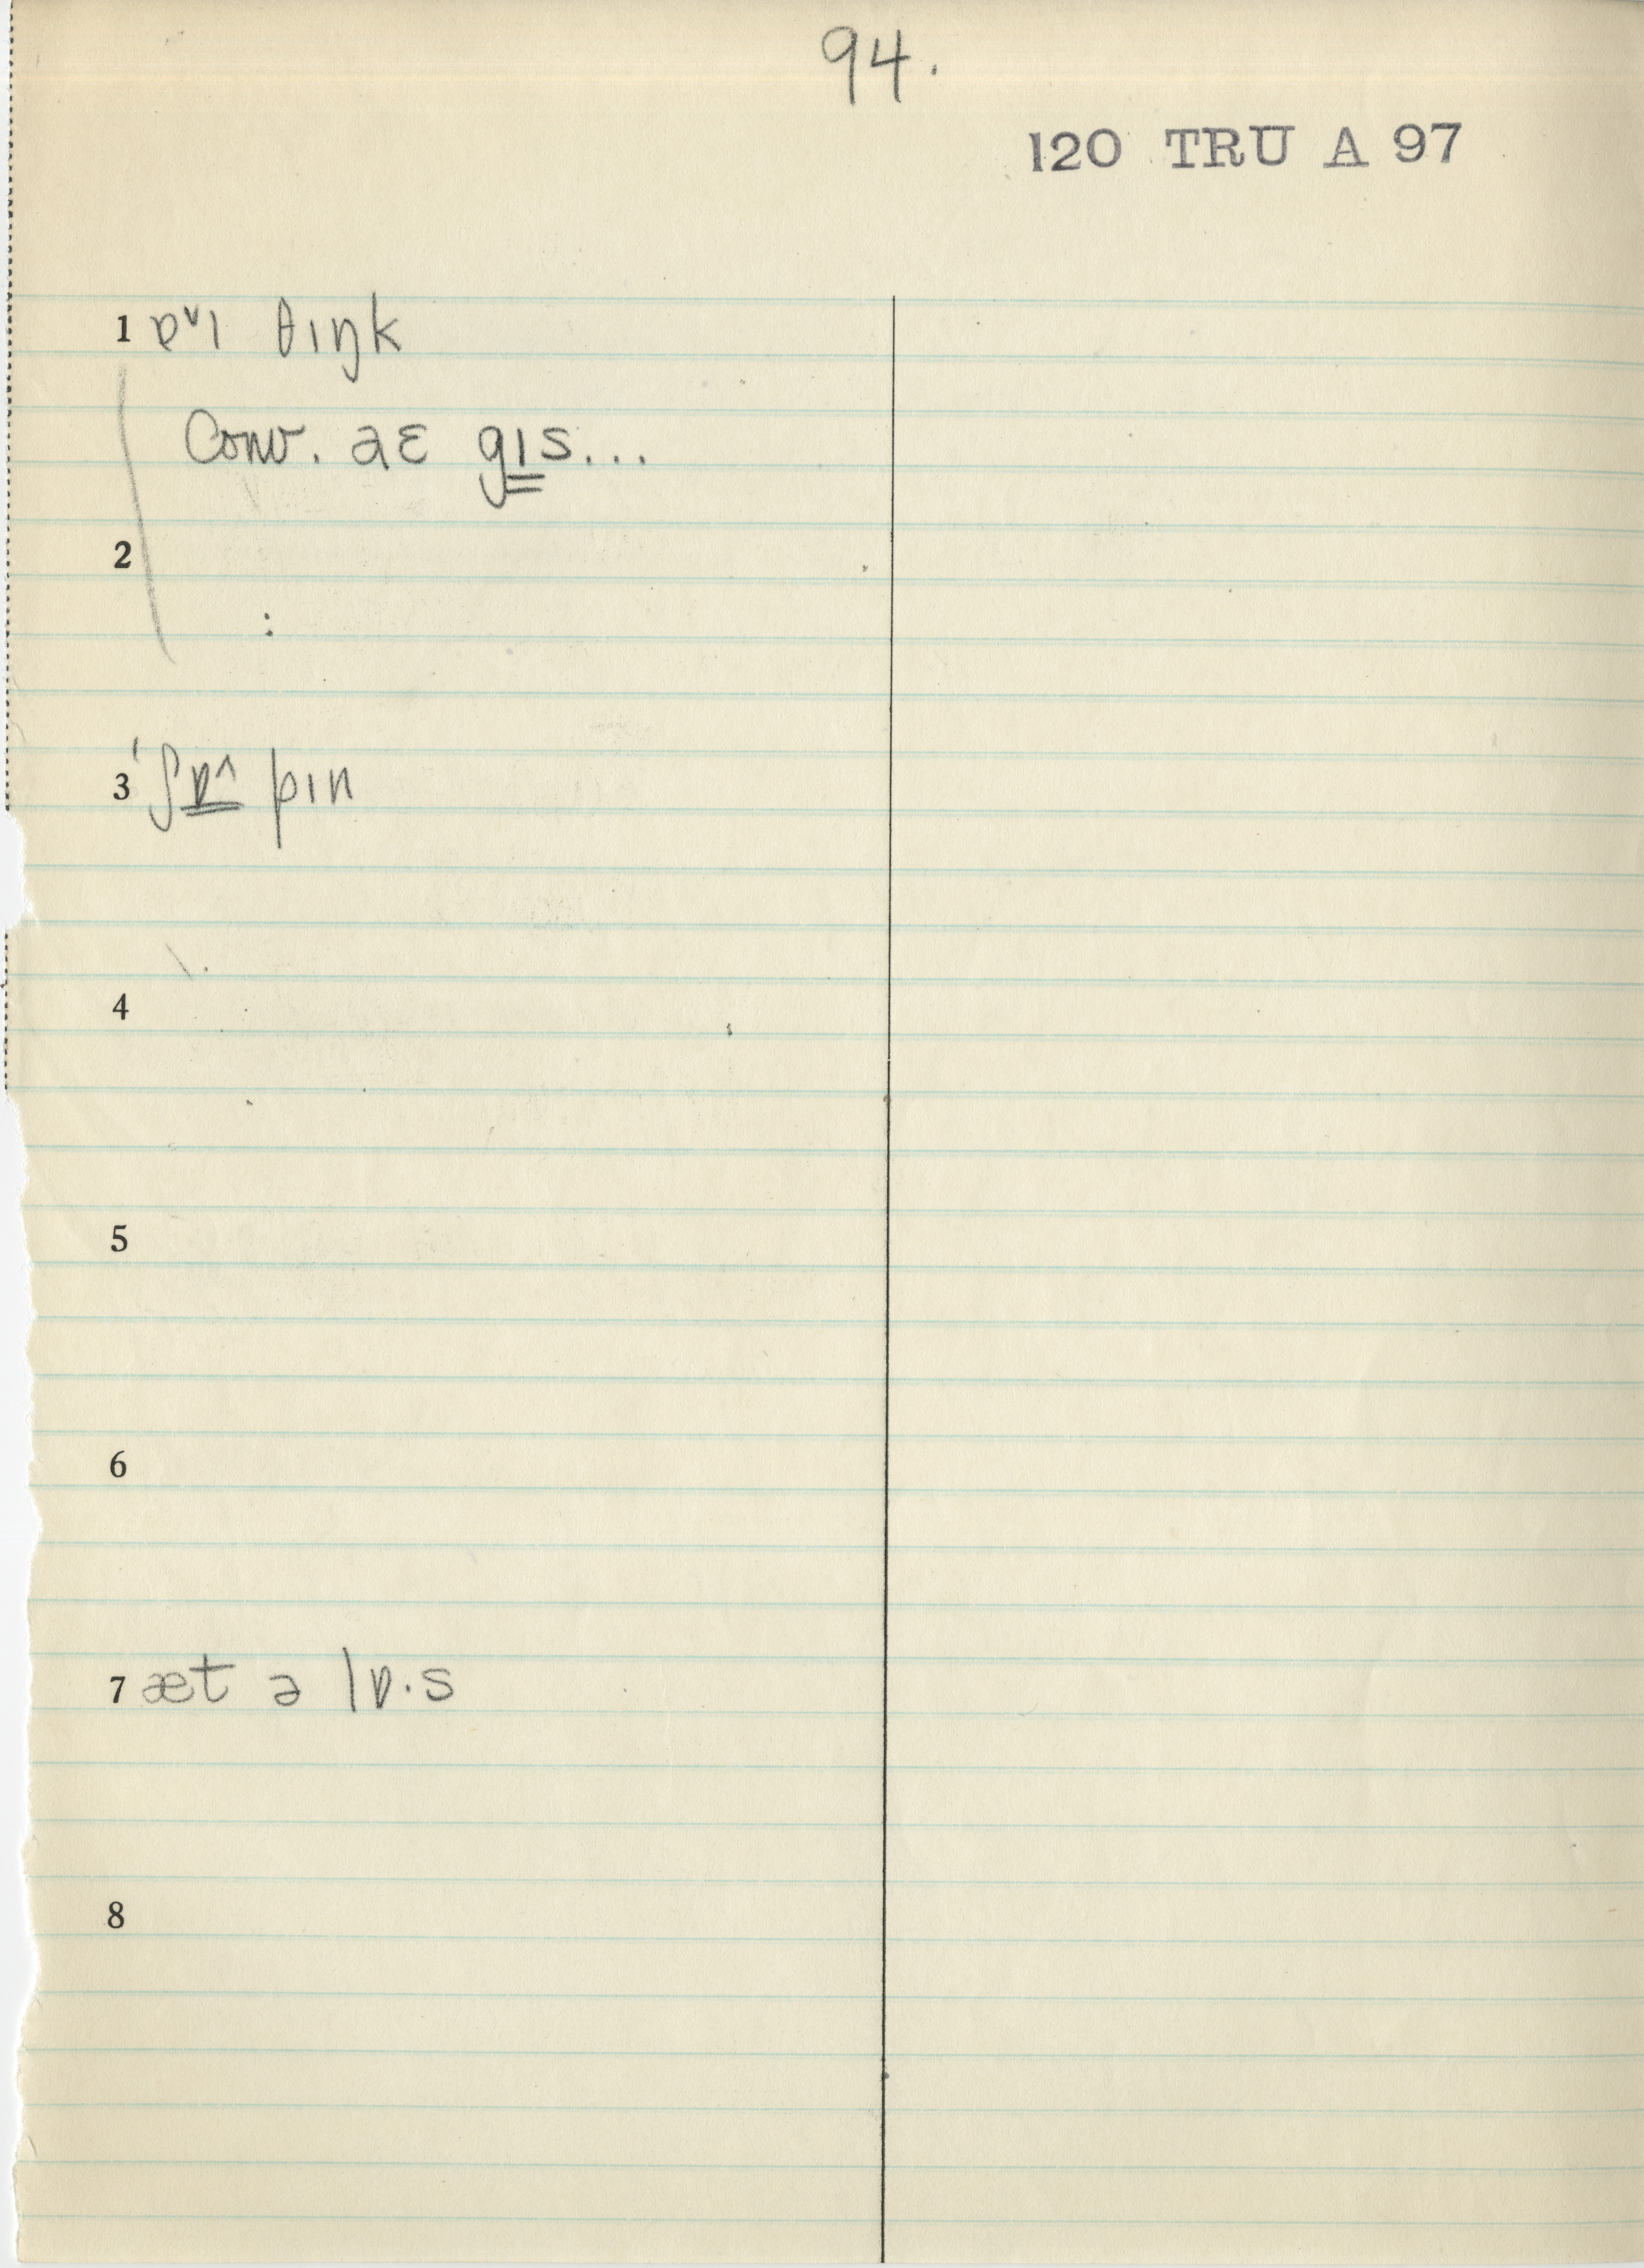 94.
120 TRU A 97
1 ɐᵛɪ θɪŋk
Conv. aɛ gɪs...
2
:
3 'ʃɒ^ pɪn
4
5
6
7 æt ə lɒ·s
8